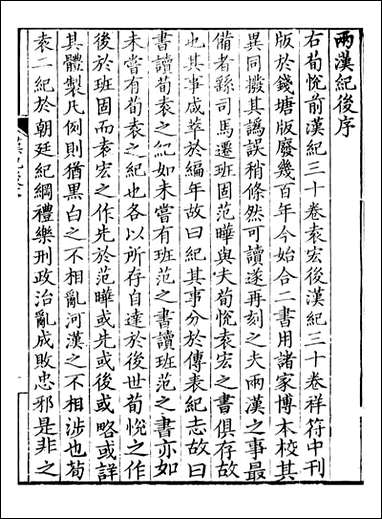 兩漢紀後序
右荀悅前漢紀三十卷袁宏後漢紀三十卷祥符中刊
版於錢塘版廢幾百年今始合二書用諸家傳本校其
異同撥其譌誤稍條然可讀遂再刻之夫兩漢之事最
備者繇司馬遷班固范曄與夫荀悅袁宏之書俱存故
也其事咸萃於編年故曰紀其事分於傳表紀志故曰
書讀荀袁之紀如未嘗有班范之書讀班范之書亦如
未嘗有荀袁之紀也各以所存自達於後世荀悅之作
後於班固而袁宏之作先於范曄或先或後或略或詳
其體製凡例則猶黑白之不相亂河漢之不相涉也荀
袁二紀於朝廷紀綱禮樂刑政治亂成敗忠邪是非之